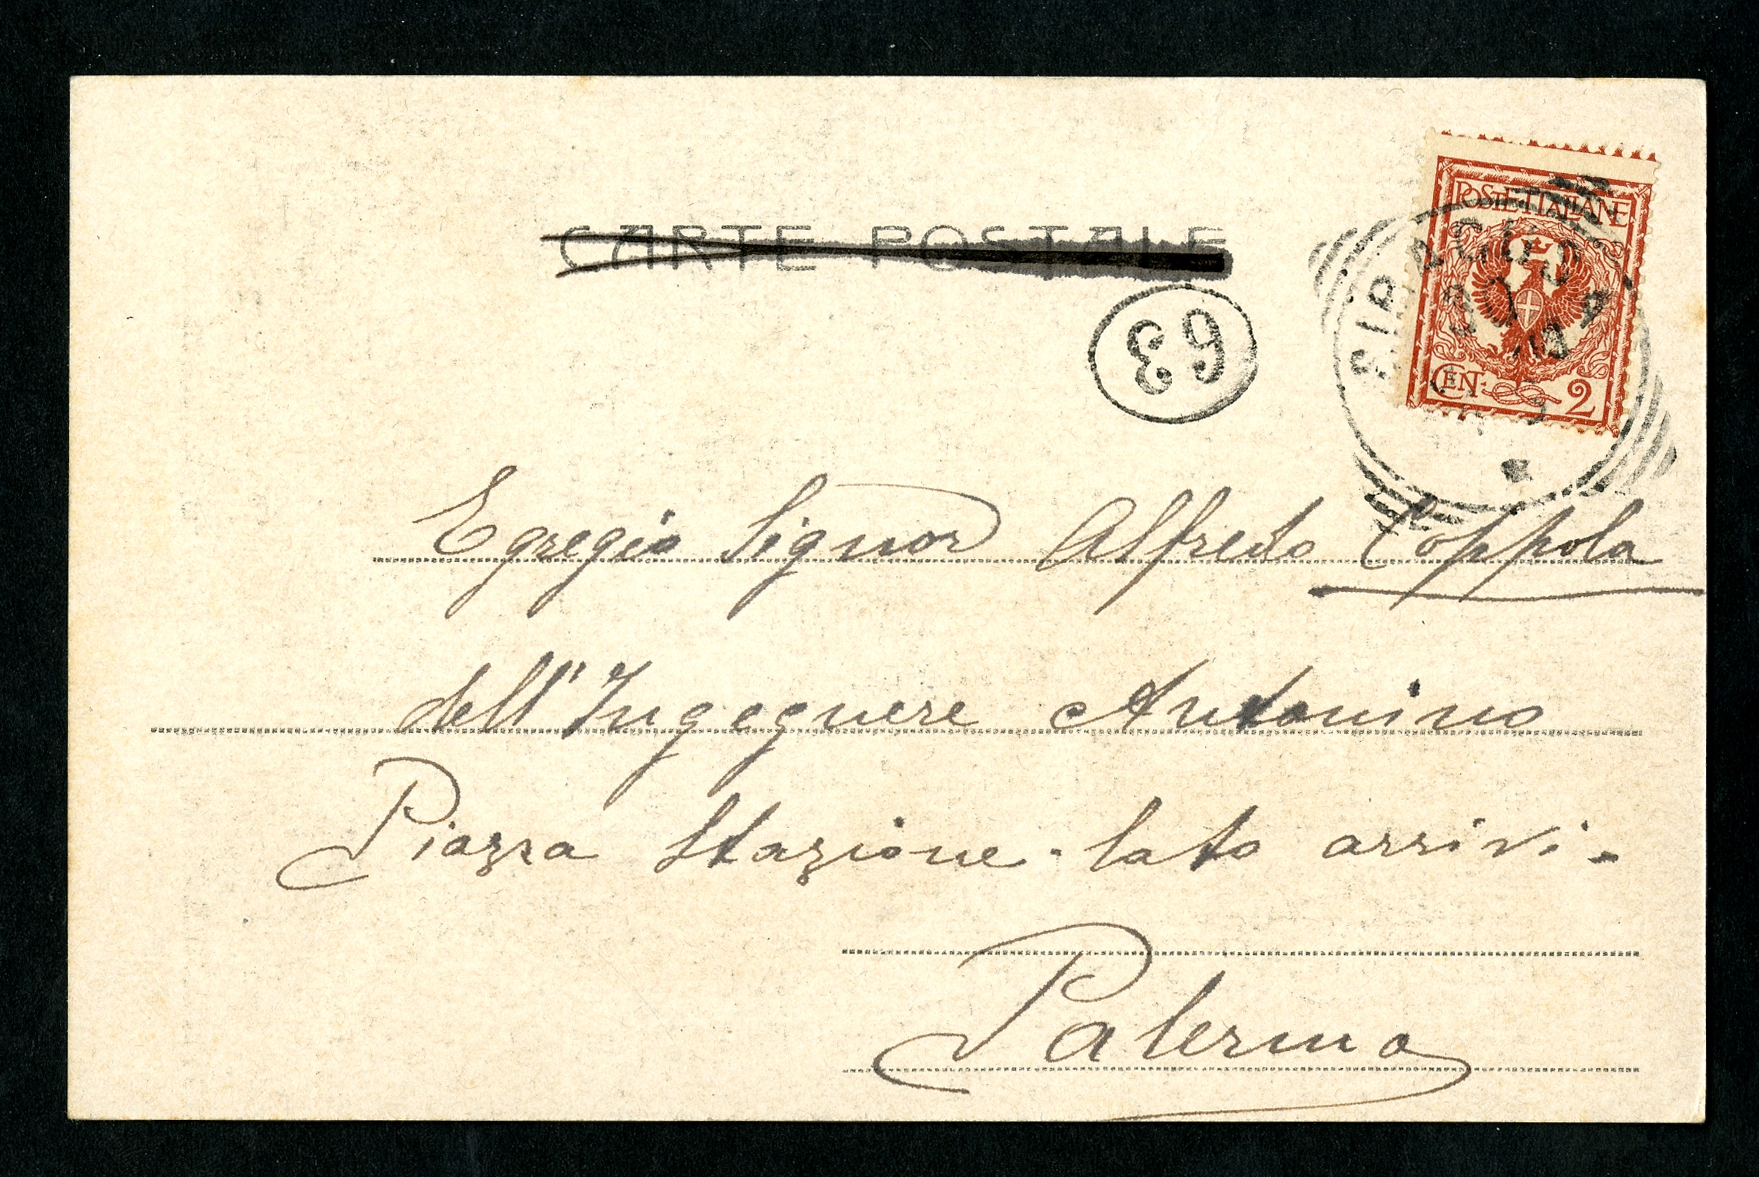 CARTE POSTALE
POSTE ITALIANE
SIRACUSA
CEN. 2
63
Egregio Signor Alfredo Coppola
dell'Ingegnere Antonino
Piazza Stazione - lato arrivi -
Palermo